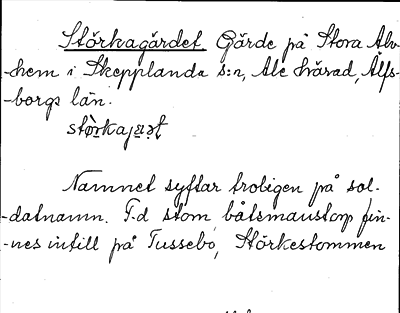 Störkagärdet Gärde på Stora Älv-
-hem i Skepplanda s:n, Ale härad, Älfs-
-borgs län.
Namnet syftar troligen på sol-
-datnamn. F.d stom, båtsmanstorp fin-
-nes intill på Tussebo, Störkestommen